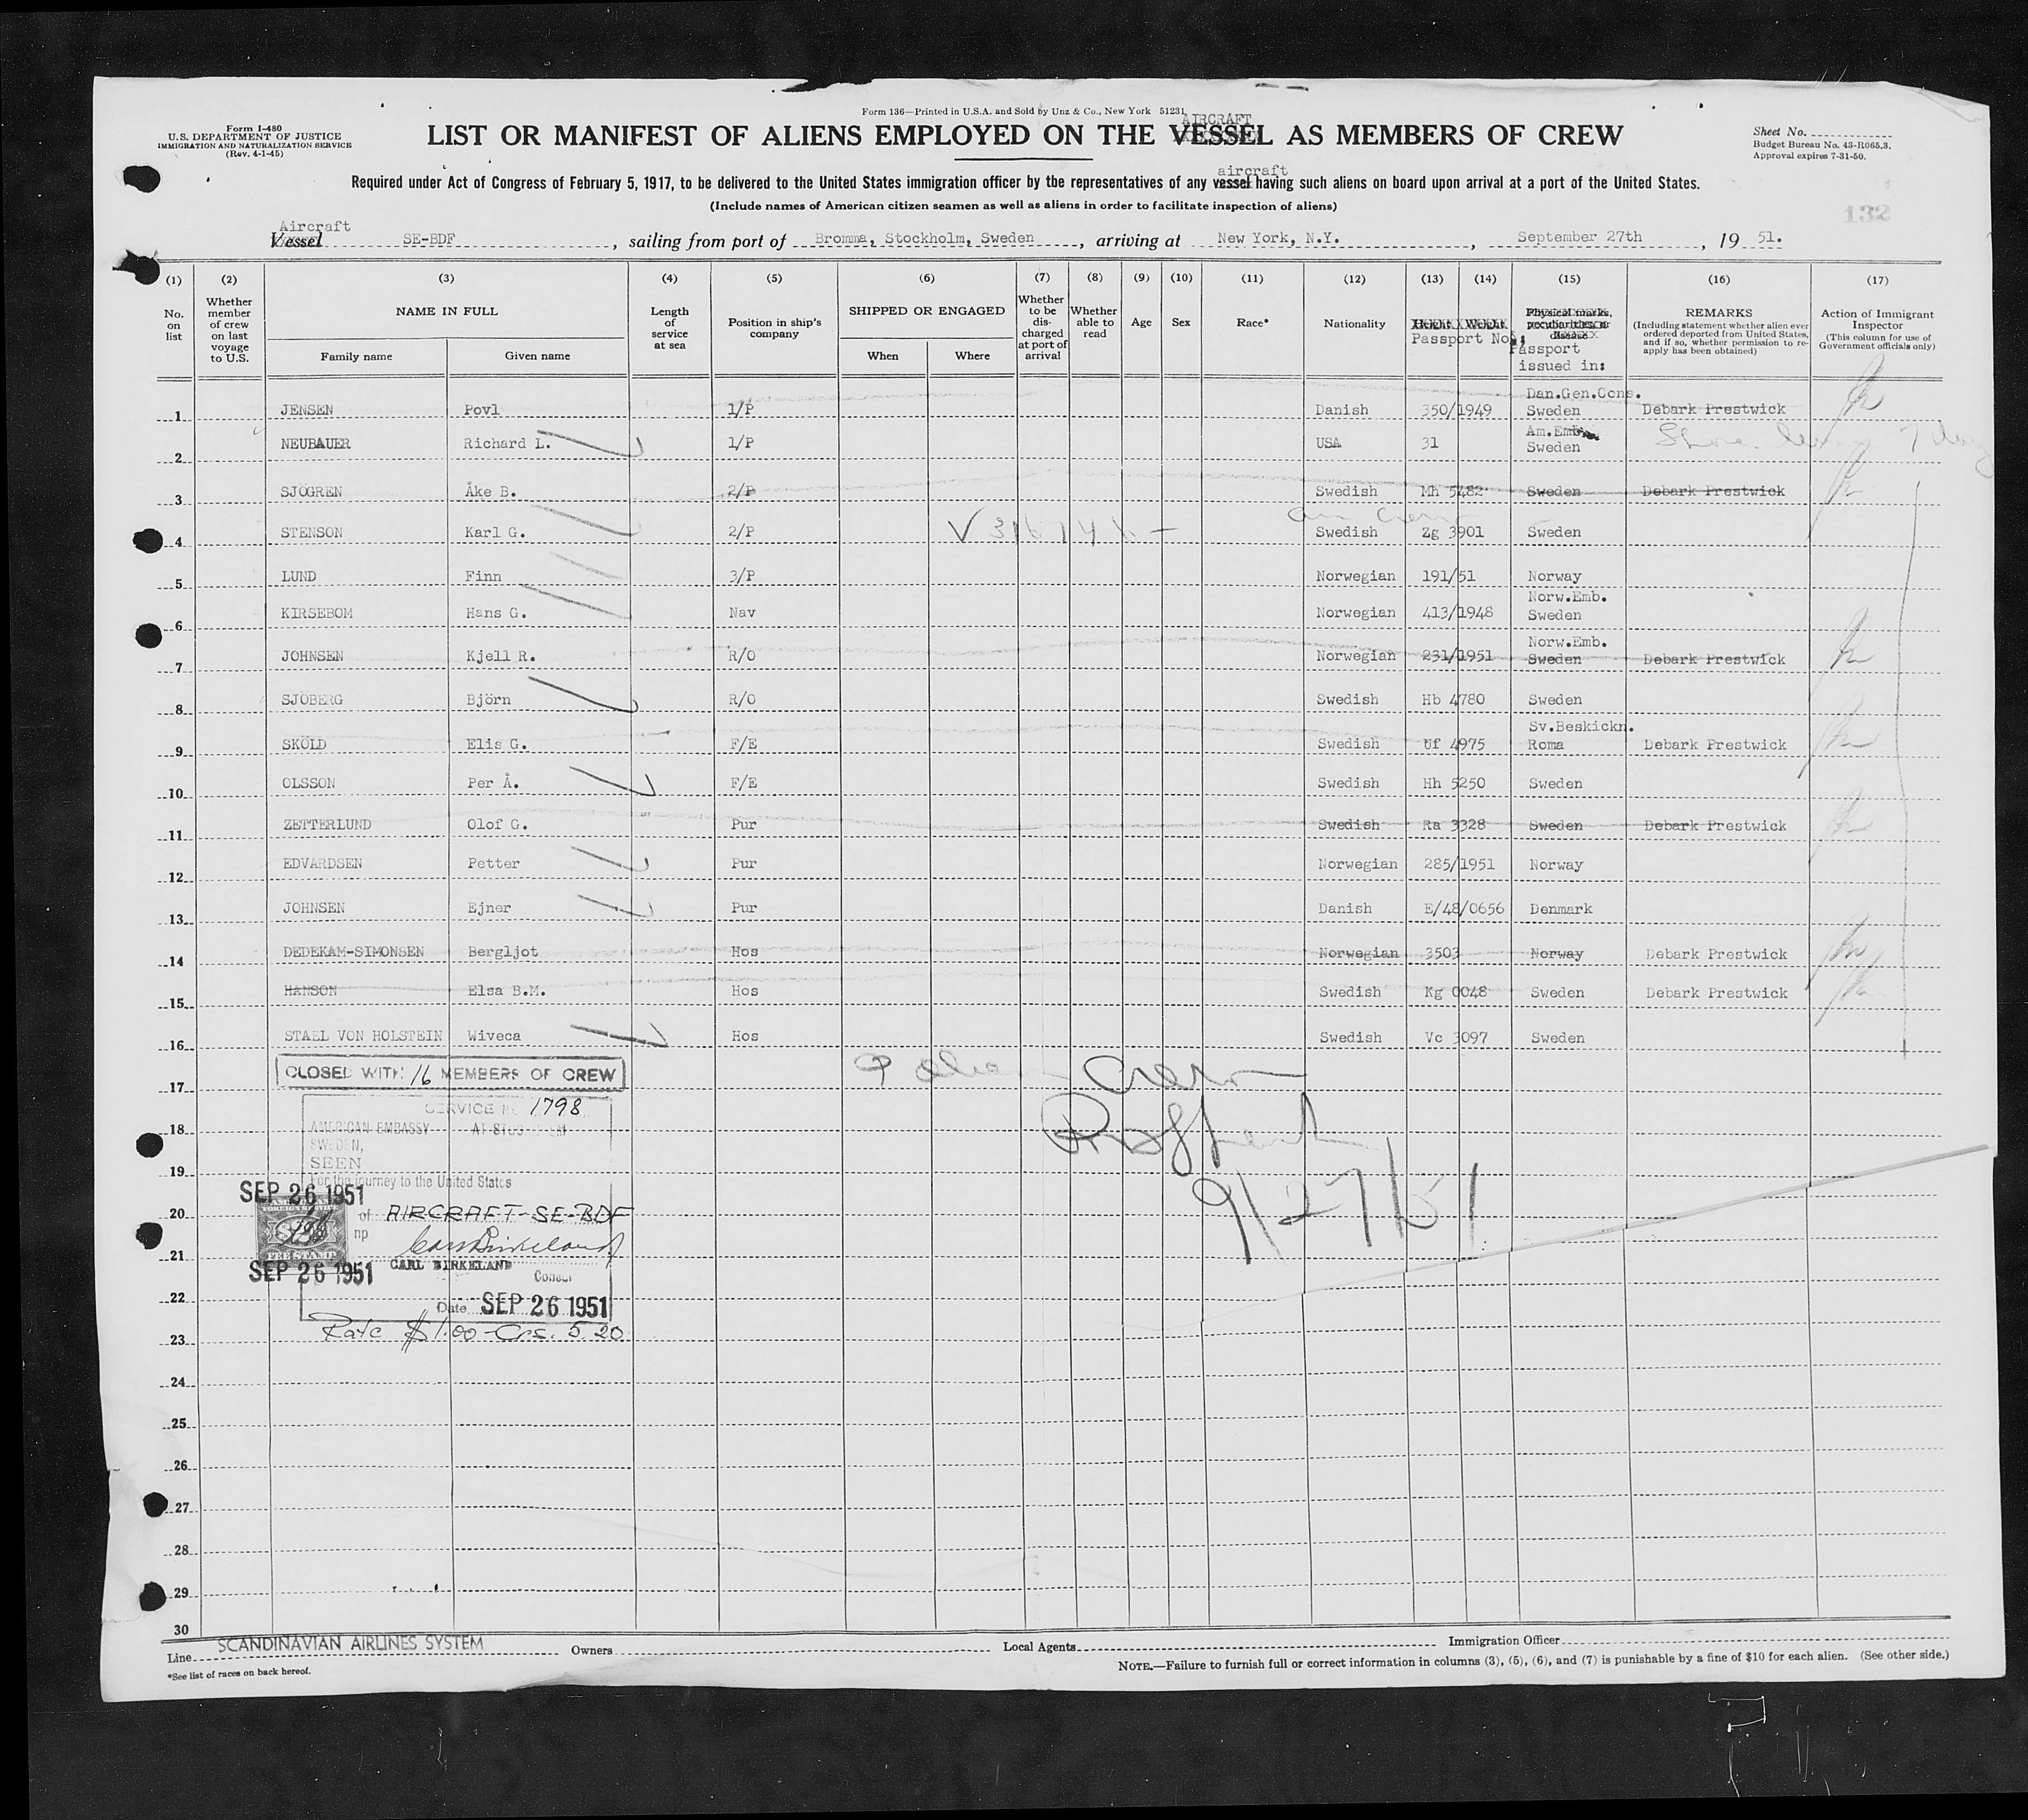 Form 136—Printed in U.S.A. and Sold by Unz & Co., New York 51231
Form I-480
U.S. DEPARTMENT OF JUSTICE
IMMIGRATION AND NATURALIZATION SERVICE
(Rev. 4-1-45)
AIRCRAFT
LIST OR MANIFEST OF ALIENS EMPLOYED ON THE VESSEL AS MEMBERS OF CREW
Sheet No.
Budget Bureau No. 43-R065.3.
Approval expires 7-31-50.
aircraft
Required under Act of Congress of February 5, 1917, to be delivered to the United States immigration officer by the representatives of any vessel having such aliens on board upon arrival at a port of the United States.
(Include names of American citizen seamen as well as aliens in order to facilitate inspection of aliens)
132
Aircraft
Vessel SE-BDF, sailing from port of Bromma, Stockholm, Sweden, arriving at New York, N.Y., September 27th, 19 51.
(1) (2) (3) (4) (5) (6) (7) (8) (9) (10) (11) (12) (13) (14) (15) (16) (17)
No. on list
Whether member of crew on last voyage to U.S.
NAME IN FULL
Family name Given name
Length of service at sea
Position in ship's company
SHIPPED OR ENGAGED
When Where
Whether to be discharged at port of arrival
Whether able to read
Age
Sex
Race*
Nationality
Height Weight
Passport No.;
Physical marks, peculiarities or disease
Passport issued in:
REMARKS
(Including statement whether alien ever ordered deported from United States, and if so, whether permission to reapply has been obtained)
Action of Immigrant Inspector
(This column for use of Government officials only)
1 JENSEN Povl 1/P Danish 350/1949 Dan.Gen.Cons. Sweden Debark Prestwick
2 NEUBAUER Richard L. 1/P USA 31 Am.Emb. Sweden
3 SJÖGREN Åke B. 2/P Swedish Mh 5482 Sweden Debark Prestwick
4 STENSON Karl G. 2/P Swedish Zg 3901 Sweden
5 LUND Finn 3/P Norwegian 191/51 Norway
6 KIRSEBOM Hans G. Nav Norwegian 413/1948 Norw.Emb. Sweden
7 JOHNSEN Kjell R. R/O Norwegian 231/1951 Norw.Emb. Sweden Debark Prestwick
8 SJÖBERG Björn R/O Swedish Hb 4780 Sweden
9 SKÖLD Elis G. F/E Swedish Uf 4975 Sv.Beskickn. Roma Debark Prestwick
10 OLSSON Per Å. F/E Swedish Hh 5250 Sweden
11 ZETTERLUND Olof G. Pur Swedish Ra 3328 Sweden Debark Prestwick
12 EDVARDSEN Petter Pur Norwegian 285/1951 Norway
13 JOHNSEN Ejner Pur Danish E/48/0656 Denmark
14 DEDEKAM-SIMONSEN Bergljot Hos Norwegian 3503 Norway Debark Prestwick
15 HANSON Elsa B.M. Hos Swedish Kg 0048 Sweden Debark Prestwick
16 STAEL VON HOLSTEIN Wiveca Hos Swedish Vc 3097 Sweden
17 CLOSED WITH 16 MEMBERS OF CREW
Crew
SERVICE No. 1798
18 AMERICAN EMBASSY AT STOCKHOLM
SWEDEN,
SEEN
19
For the journey to the United States
SEP 26 1951
9/27/51
20 of AIRCRAFT-SE-BDF
FOREIGN SERVICE
np
FEE STAMP
21
CARL BIRKELAND
SEP 26 1951
Consul
22
Date SEP 26 1951
23 Rate $1.00-Crs. 5.20
24
25
26
27
28
29
30
Line SCANDINAVIAN AIRLINES SYSTEM Owners Local Agents Immigration Officer
*See list of races on back hereof.
NOTE.—Failure to furnish full or correct information in columns (3), (5), (6), and (7) is punishable by a fine of $10 for each alien. (See other side.)